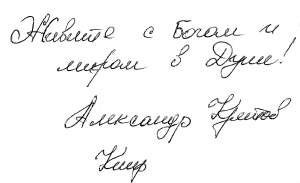 Живите с Богом и
миром в Душе!
Александр
Кипр